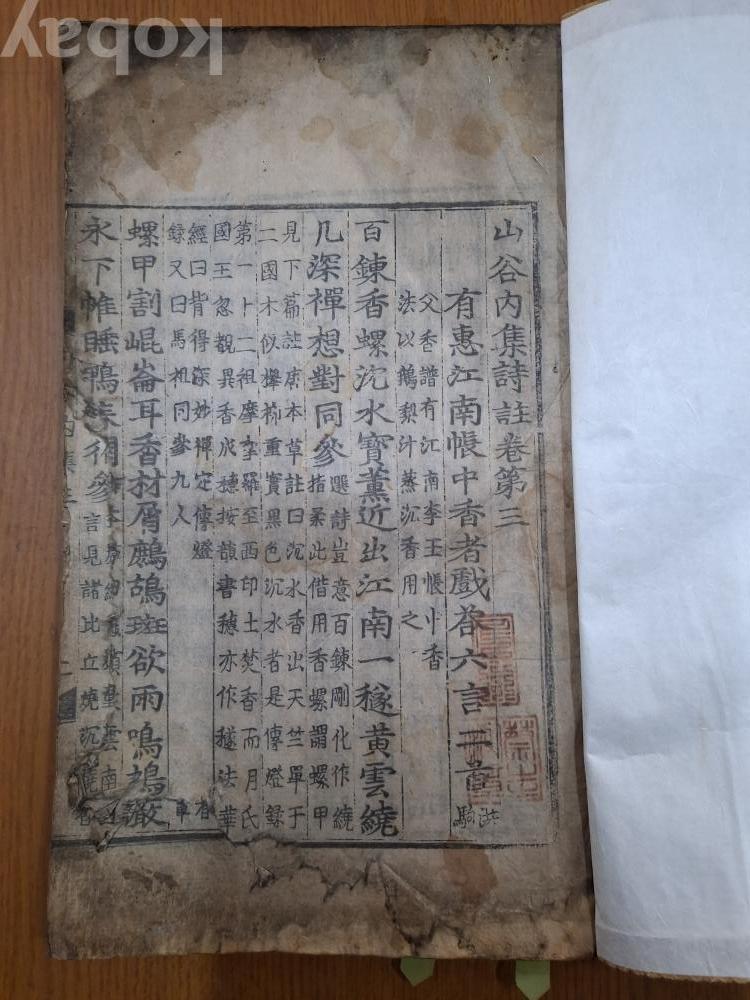 kobay
山谷內集詩註卷第三
有惠江南帳中香者戲荅六言二首
洪駒
父香譜有江南李王帳中香
法以鵝梨汁蒸沉香用之
百鍊香螺沈水寶薰近出江南一穟黃雲繞
几深禪想對同參
選詩豈意百鍊剛化作繞
指柔此借用香螺謂螺甲
見下篇註唐本草註曰沉水香出天竺單于
二國木似櫸柳重實黑色沉水者是傳燈錄
第一十二祖摩拏羅至西印土焚香而月氏
國王忽覩異香成穗按韻書穗亦作穟法華
經曰背得深妙禪定傳燈
錄又曰馬祖同參九人
螺甲割崐崙耳香材屑鷓鴣斑欲雨鳴鳩
永下帷睡鴨
言見諸比丘燒沉